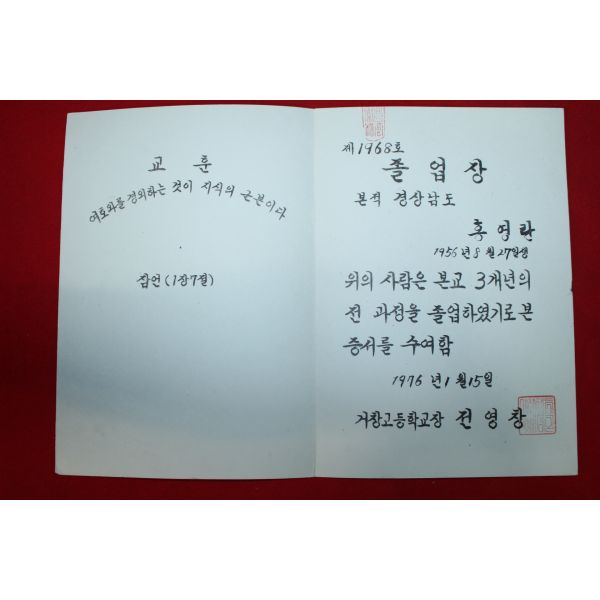 교훈
여호와를 경외하는 것이 지식의 근본이라
잠언(1장7절)
제1968호
졸업장
본적 경상남도
홍영란
1956년 8월 27일생
위의 사람은 본교 3개년의
전 과정을 졸업하였기로 본
증서를 수여함
1976년 1월 15일
거창고등학교장 전영창